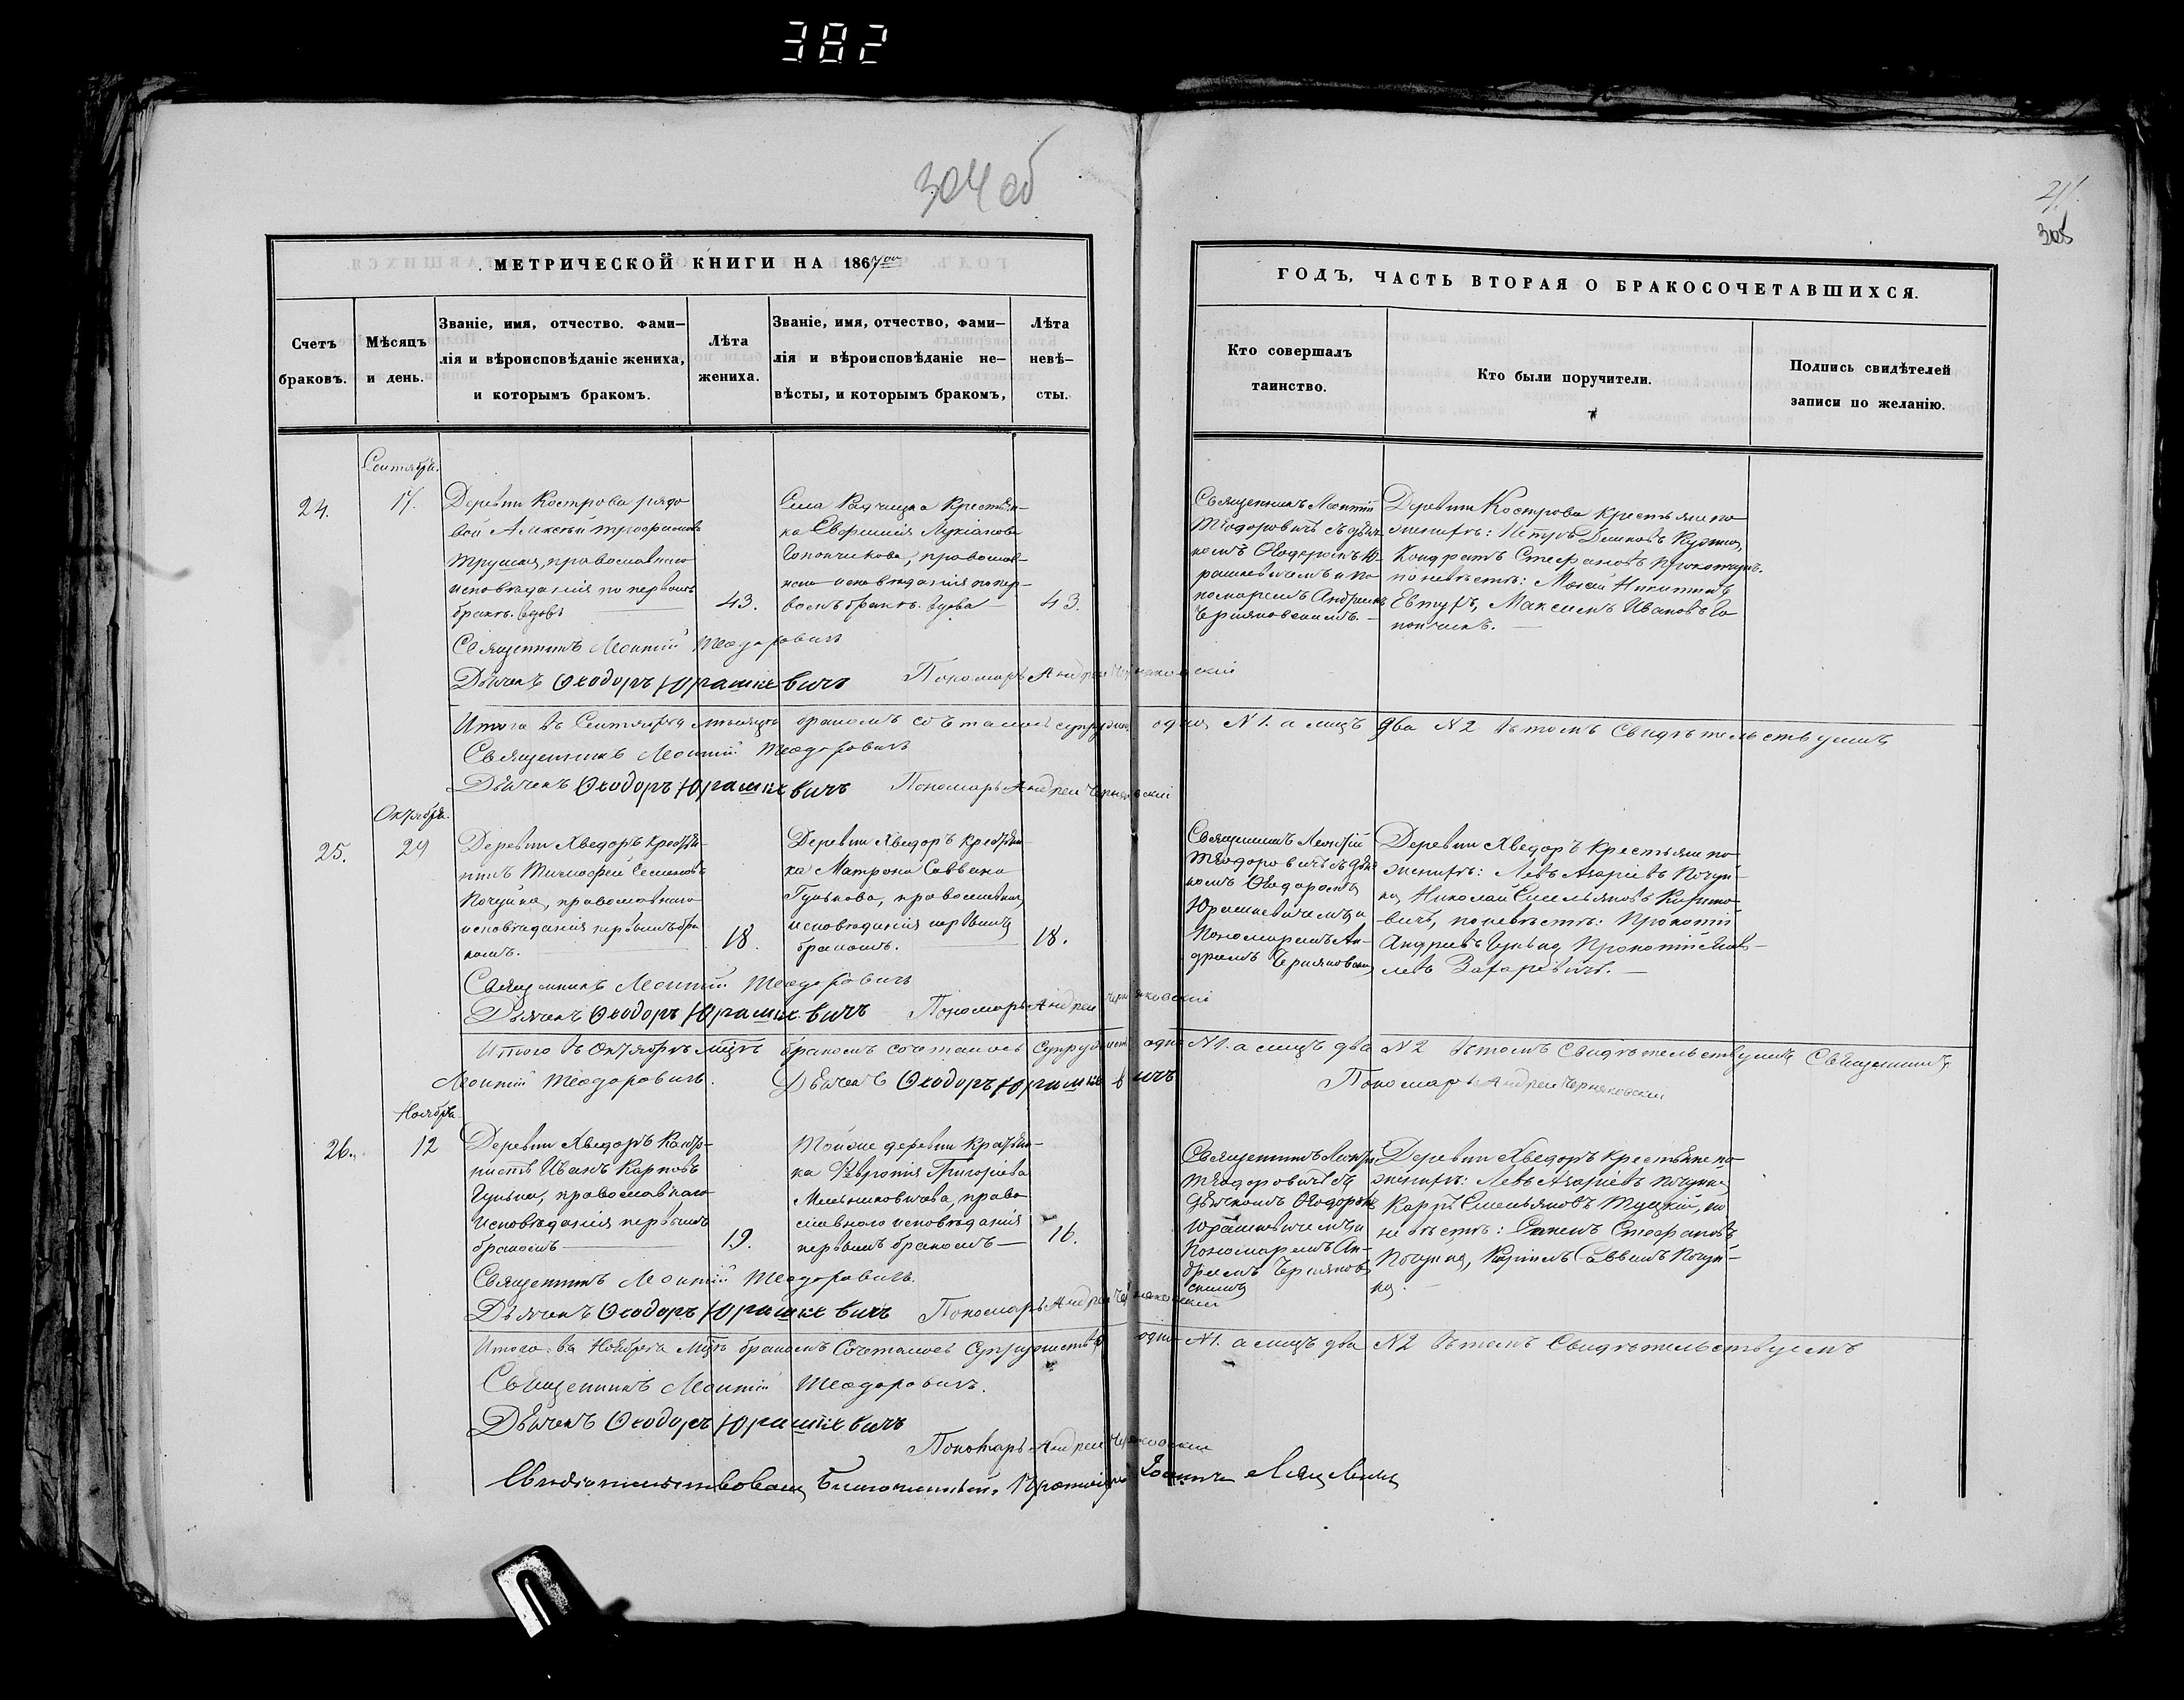 382
304 об
21.
305
МЕТРИЧЕСКОЙ КНИГИ НА 1867 ой
ГОДЪ, ЧАСТЬ ВТОРАЯ О БРАКОСОЧЕТАВШИХСЯ.
Счетъ
браковъ.
Мѣсяцъ
и день.
Званіе, имя, отчество. фами–
лія и вѣроисповѣданіе жениха,
и которымъ бракомъ.
Лѣта
жениха.
Званіе, имя, отчество, фами–
лія и вѣроисповѣданіе не–
вѣсты, и которымъ бракомъ,
Лѣта
невѣ–
сты.
Кто совершалъ
таинство.
Кто были поручители.
Подпись свидѣтелей
записи по желанію.
Сентября.
24.
17.
Деревни Кострова рядо
вой Алексѣй Трофимовъ
православнаго
исповѣданія по первомъ
бракѣ. вдовъ
43.
Села Радчицка крестьян–
ка Евфимія Лукіанова
Гопончикова, православ–
наго исповѣданія по пер–
вомъ бракѣ. вдова
43.
Священникъ Леонтій
Ѳеодоровичъ съ дьяч–
комъ Ѳеодоромъ Ю–
рашкевичемъ и по
номаремъ Андреемъ
Черняковскимъ.
Деревни Кострова крестьяне по
женихѣ: Петръ
Кондратъ Стефановъ
по невѣстѣ: Моисей Никитинъ
Евтухъ, Максимъ Ивановъ Го
пончикъ.
Священникъ Леонтій Ѳеодоровичъ
Дьячекъ Ѳеодоръ Юрашкевичъ Пономарь Андрей Черняковскій
Итого въ Сентябрѣ мѣсяцѣ бракомъ сочеталось супружество одно N 1. а лицъ два N 2 въ томъ свидѣтельствуемъ
Священникъ Леонтій Ѳеодоровичъ
Дьячекъ Ѳеодоръ Юрашкевичъ Пономарь Андрей Черняковскій
Октября.
25.
29
Деревни Хведоръ крестья–
нинъ Тимофей Семеновъ
Кочупка, православнаго
исповѣданія первымъ бра
комъ.
18.
Деревни Хведоръ крестьян
ка Матрона Саввина
Гунькова, православнаго
исповѣданія первымъ
бракомъ.
18.
Священникъ Леонтій
Ѳеодоровичъ съ дьяч
комъ Ѳеодоромъ
Юрашкевичемъ и
Пономаремъ Ан–
дреемъ Черняковскимъ
Деревни Хведоръ крестьяне по
женихѣ: Левъ Азаріевъ Кочуп–
ка, Николай Емельяновъ
по невѣстѣ: Прокопій
Андреевъ Гунька, Прокопій Яков–
левъ Захаревичъ.
Священникъ Леонтій Ѳеодоровичъ
Дьячекъ Ѳеодоръ Юрашкевичъ Пономарь Андрей Черняковскій
Итого въ Октябрѣ мцѣ бракомъ сочеталось супружество одно N 1. а лицъ два N 2 въ томъ свидѣтельствуемъ Священникъ
Леонтій Ѳеодоровичъ. Дьячекъ Ѳеодоръ Юрашкевичъ Пономарь Андрей Черняковскій
Ноября
26.
12
Деревни Хведоръ Канто–
нистъ Иванъ Карповъ
Гунька, православнаго
исповѣданія первымъ
бракомъ
19.
Тойже деревни крестьян–
ка Февронія Григоріева
Мельниковичева, право
славнаго исповѣданія
первымъ бракомъ
16.
Священникъ Леонтій
Ѳеодоровичъ съ
дьячкомъ Ѳеодоромъ
Юрашкевичемъ и
Пономаремъ Ан–
дреемъ Черняков
скимъ
Деревни Хведоръ крестьяне по
женихѣ: Левъ Азаріевъ Кочупка,
Карпъ Емельяновъ Туцкій, по
невѣстѣ: Стефановъ
Кочупка, Саввинъ Кочуп–
ка.
Священникъ Леонтій Ѳеодоровичъ.
Дьячекъ Ѳеодоръ Юрашкевичъ Пономарь Андрей Черняковскій
Итого въ Ноябрѣ мцѣ бракомъ сочеталось супружество одно N 1. а лицъ два N 2 въ томъ свидѣтельствуемъ
Священникъ Леонтій Ѳеодоровичъ.
Дьячекъ Ѳеодоръ Юрашкевичъ
Пономарь Андрей Черняковскій
Свидѣтельствовалъ Благочинный, Протоіерей Іоаннъ